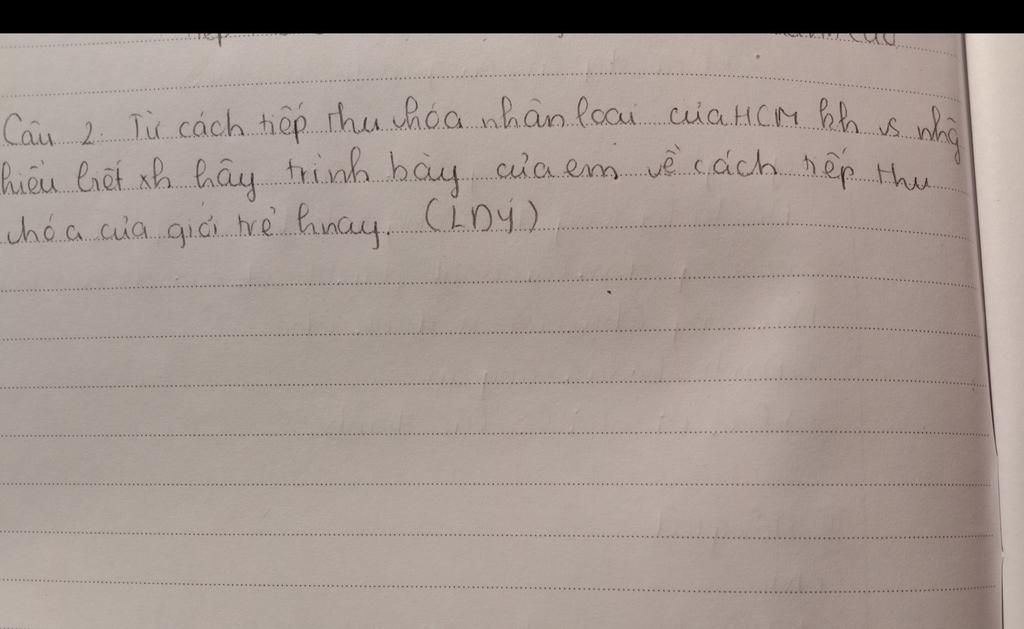 Câu 2. Từ cách tiếp thu vhóa nhân loại của HCM kh vs nhg̃
hiểu biết xh hãy trình bày của em về cách tiếp thu
vhóa của giới trẻ hnay. (LDY)